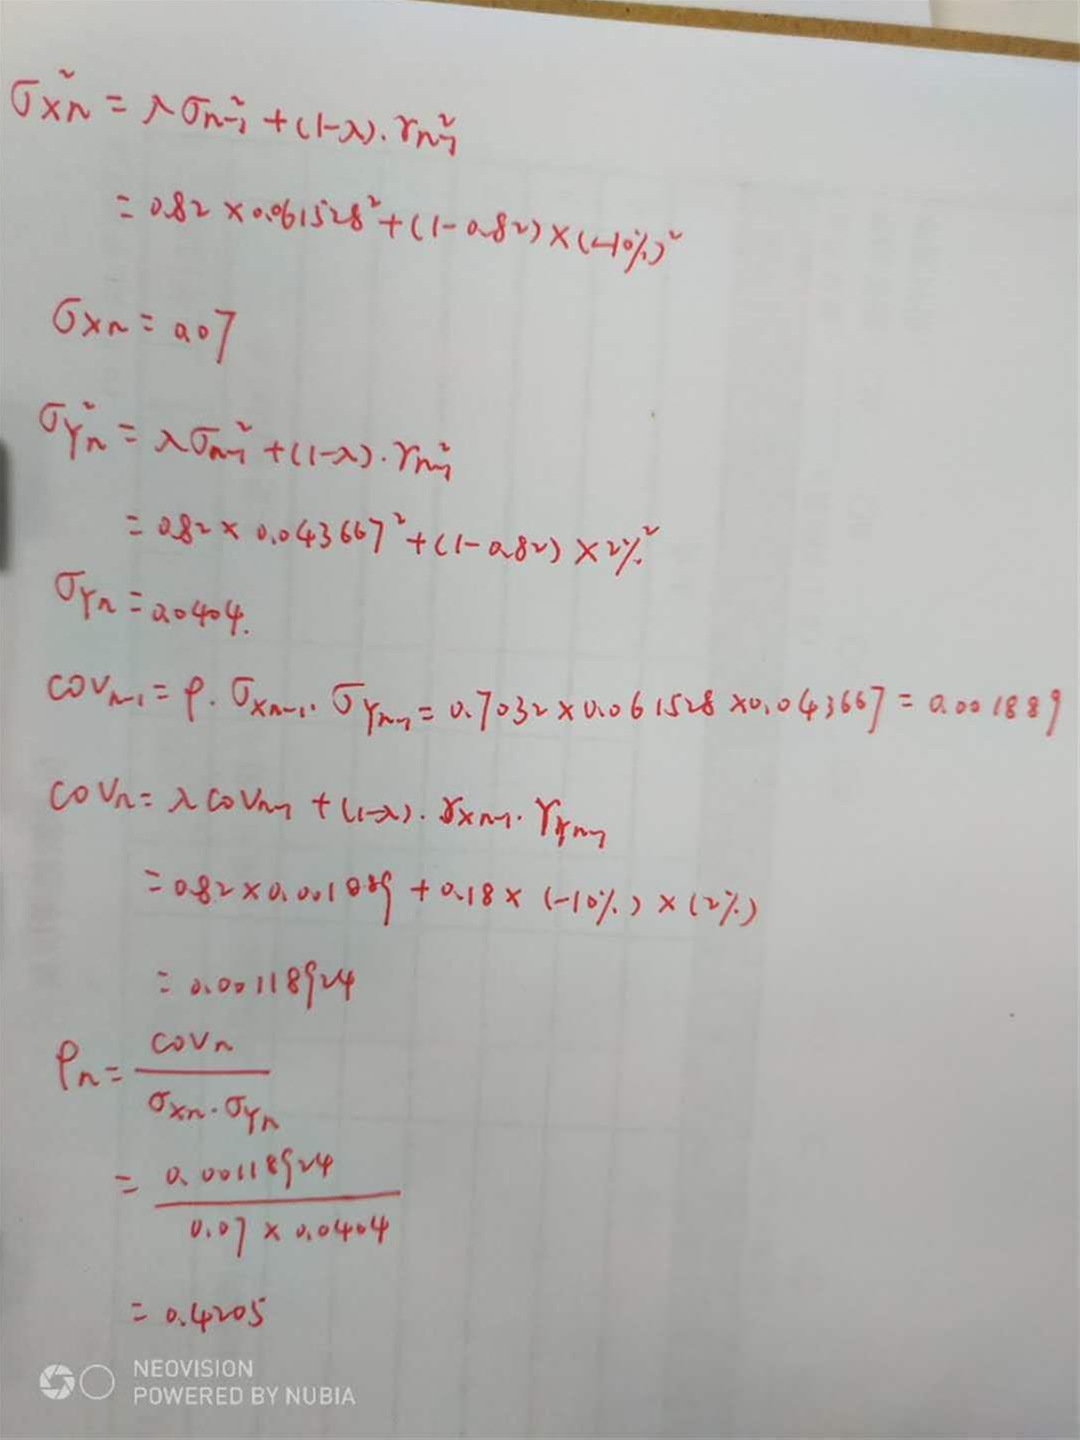 σ²Xn = λσ²n-1 + (1-λ)·r²n-1
= 0.82 × 0.061528² + (1-0.82) × (-10%)²
σXn = 0.07
σ²Yn = λσ²n-1 + (1-λ)·r²n-1
= 0.82 × 0.043667² + (1-0.82) × 2%²
σYn = 0.0404.
COVn-1 = ρ·σXn-1·σYn-1 = 0.7032 × 0.061528 × 0.043667 = 0.001889
COVn = λCOVn-1 + (1-λ)·rXn-1·rYn-1
= 0.82 × 0.001889 + 0.18 × (-10%) × (2%)
= 0.00118924
ρn = COVn / σXn·σYn
= 0.00118924 / 0.07 × 0.0404
= 0.4205
NEOVISION
POWERED BY NUBIA